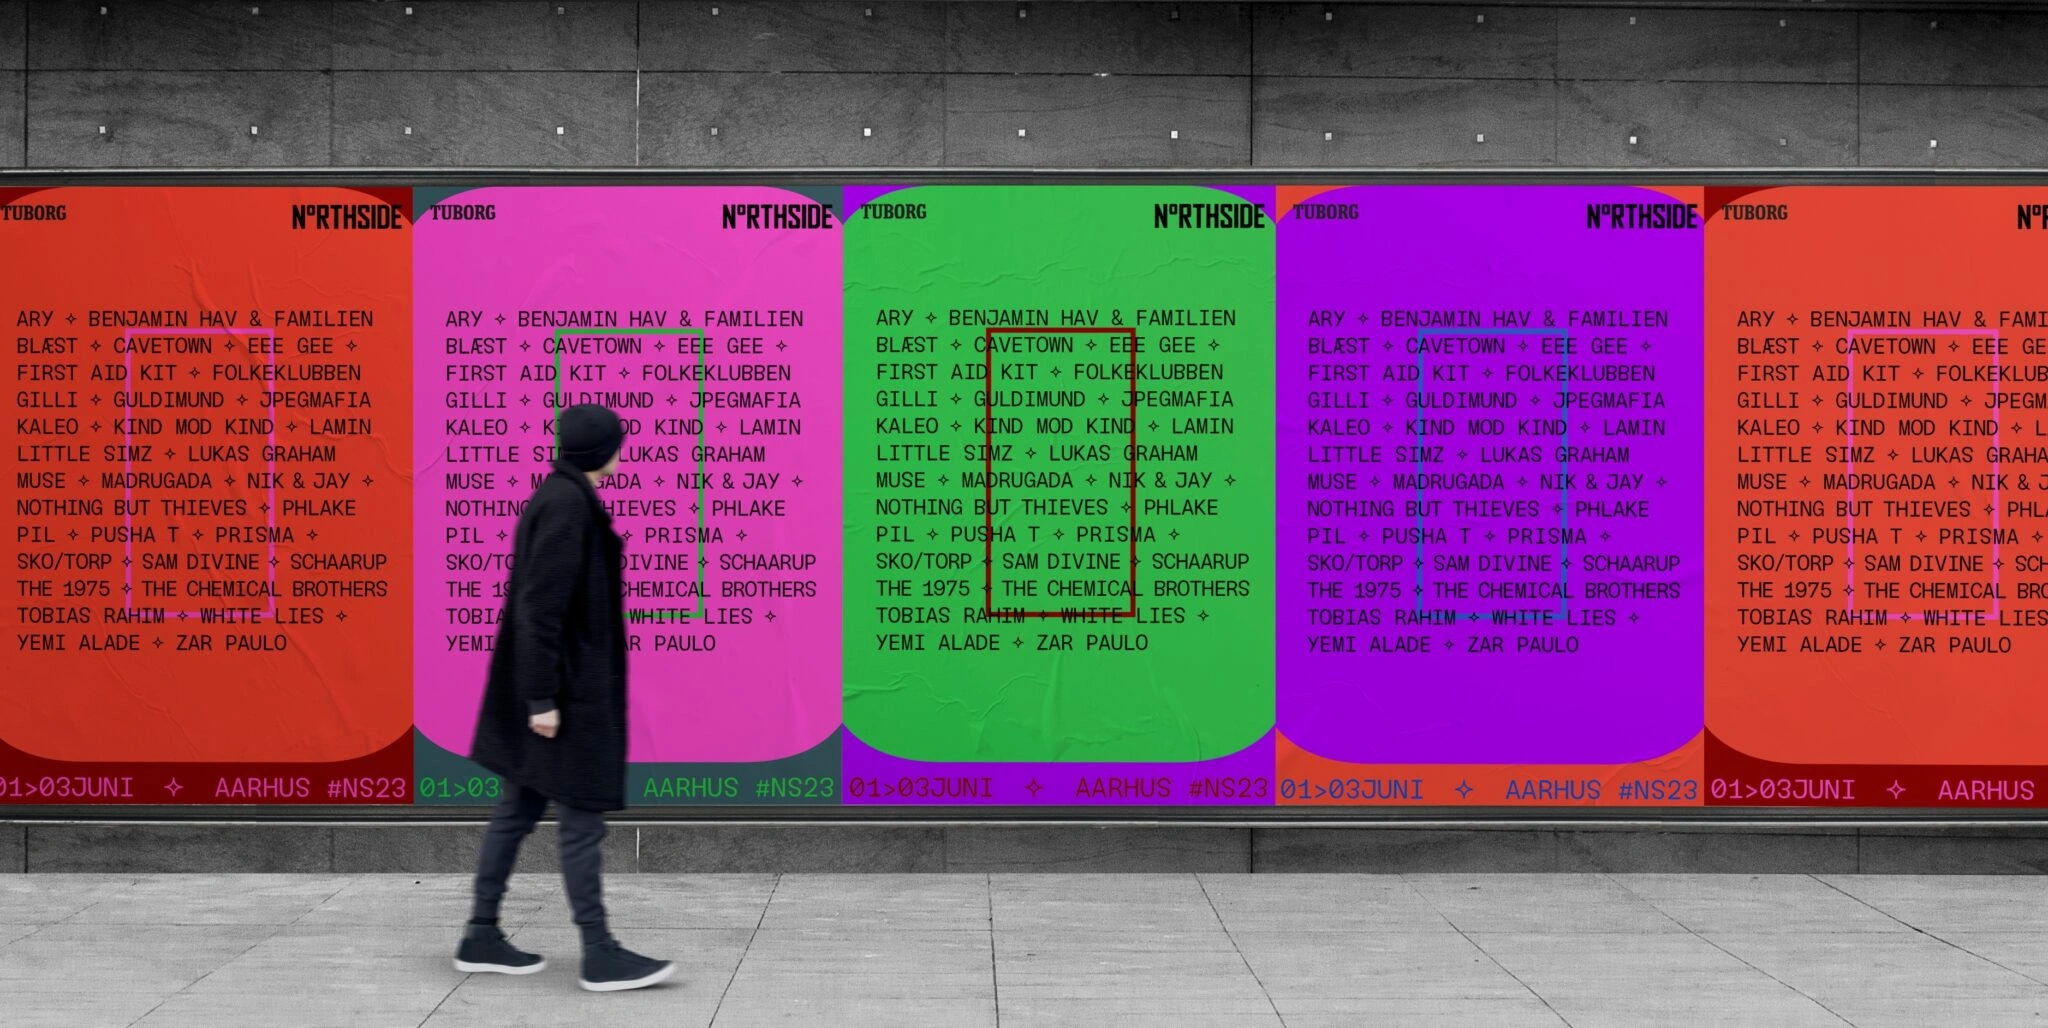 TUBORG N°RTHSIDE
ARY ✧ BENJAMIN HAV & FAMILIEN
BLÆST ✧ CAVETOWN ✧ EEE GEE ✧
FIRST AID KIT ✧ FOLKEKLUBBEN
GILLI ✧ GULDIMUND ✧ JPEGMAFIA
KALEO ✧ KIND MOD KIND ✧ LAMIN
LITTLE SIMZ ✧ LUKAS GRAHAM
MUSE ✧ MADRUGADA ✧ NIK & JAY ✧
NOTHING BUT THIEVES ✧ PHLAKE
PIL ✧ PUSHA T ✧ PRISMA ✧
SKO/TORP ✧ SAM DIVINE ✧ SCHAARUP
THE 1975 ✧ THE CHEMICAL BROTHERS
TOBIAS RAHIM ✧ WHITE LIES ✧
YEMI ALADE ✧ ZAR PAULO
01>03JUNI ✧ AARHUS #NS23
TUBORG N°RTHSIDE
ARY ✧ BENJAMIN HAV & FAMILIEN
BLÆST ✧ CAVETOWN ✧ EEE GEE ✧
FIRST AID KIT ✧ FOLKEKLUBBEN
GILLI ✧ GULDIMUND ✧ JPEGMAFIA
KALEO ✧ MOD KIND ✧ LAMIN
LITTLE LUKAS GRAHAM
MUSE ✧ ✧ NIK & JAY ✧
✧ PHLAKE
PIL ✧ ✧ PRISMA ✧
DIVINE ✧ SCHAARUP
THE CHEMICAL BROTHERS
WHITE LIES ✧
YEMI PAULO
AARHUS #NS23
TUBORG N°RTHSIDE
ARY ✧ BENJAMIN HAV & FAMILIEN
BLÆST ✧ CAVETOWN ✧ EEE GEE ✧
FIRST AID KIT ✧ FOLKEKLUBBEN
GILLI ✧ GULDIMUND ✧ JPEGMAFIA
KALEO ✧ KIND MOD KIND ✧ LAMIN
LITTLE SIMZ ✧ LUKAS GRAHAM
MUSE ✧ MADRUGADA ✧ NIK & JAY ✧
NOTHING BUT THIEVES ✧ PHLAKE
PIL ✧ PUSHA T ✧ PRISMA ✧
SKO/TORP ✧ SAM DIVINE ✧ SCHAARUP
THE 1975 ✧ THE CHEMICAL BROTHERS
TOBIAS RAHIM ✧ WHITE LIES ✧
YEMI ALADE ✧ ZAR PAULO
01>03JUNI ✧ AARHUS #NS23
TUBORG N°RTHSIDE
ARY ✧ BENJAMIN HAV & FAMILIEN
BLÆST ✧ CAVETOWN ✧ EEE GEE ✧
FIRST AID KIT ✧ FOLKEKLUBBEN
GILLI ✧ GULDIMUND ✧ JPEGMAFIA
KALEO ✧ KIND MOD KIND ✧ LAMIN
LITTLE SIMZ ✧ LUKAS GRAHAM
MUSE ✧ MADRUGADA ✧ NIK & JAY ✧
NOTHING BUT THIEVES ✧ PHLAKE
PIL ✧ PUSHA T ✧ PRISMA ✧
SKO/TORP ✧ SAM DIVINE ✧ SCHAARUP
THE 1975 ✧ THE CHEMICAL BROTHERS
TOBIAS RAHIM ✧ WHITE LIES ✧
YEMI ALADE ✧ ZAR PAULO
01>03JUNI ✧ AARHUS #NS23
TUBORG
ARY ✧ BENJAMIN HAV &
BLÆST ✧ CAVETOWN ✧ EEE
FIRST AID KIT ✧
GILLI ✧ GULDIMUND ✧
KALEO ✧ KIND MOD KIND ✧
LITTLE SIMZ ✧ LUKAS
MUSE ✧ MADRUGADA ✧ NIK &
NOTHING BUT THIEVES ✧
PIL ✧ PUSHA T ✧ PRISMA ✧
SKO/TORP ✧ SAM DIVINE ✧
THE 1975 ✧ THE CHEMICAL
TOBIAS RAHIM ✧ WHITE LIES
YEMI ALADE ✧ ZAR PAULO
01>03JUNI ✧ AARHUS